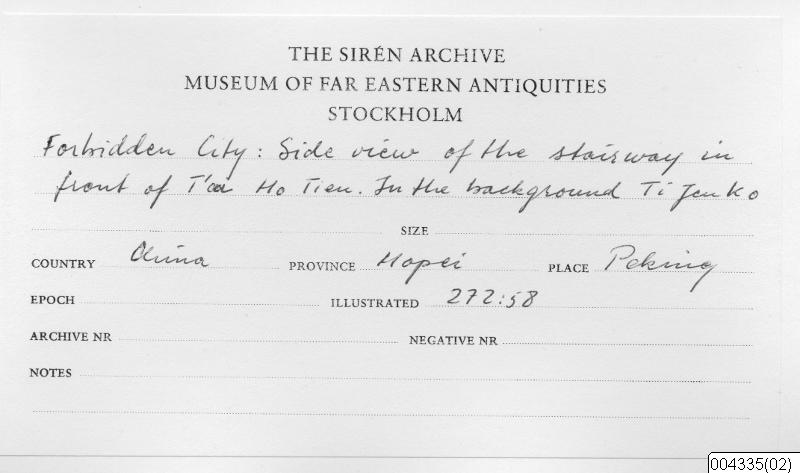 THE SIRÉN ARCHIVE
MUSEUM OF FAR EASTERN ANTIQUITIES
STOCKHOLM
Forbidden City: Side view of the stairway in
front of T'ai Ho Tien. In the background Ti Jen Ko
SIZE
COUNTRY China PROVINCE Hopei PLACE Peking
EPOCH ILLUSTRATED 272:58
ARCHIVE NR NEGATIVE NR
NOTES
004335(02)